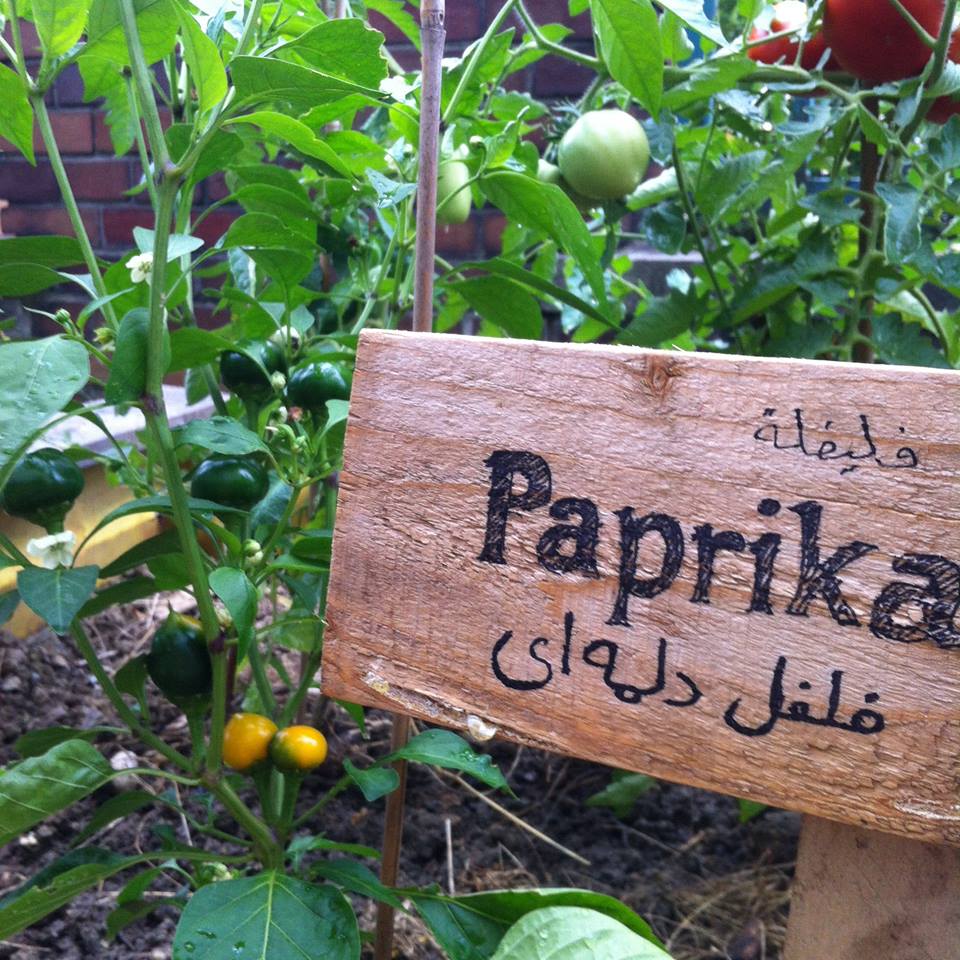 فليفلة
Paprika
فلفل دلمه‌ای